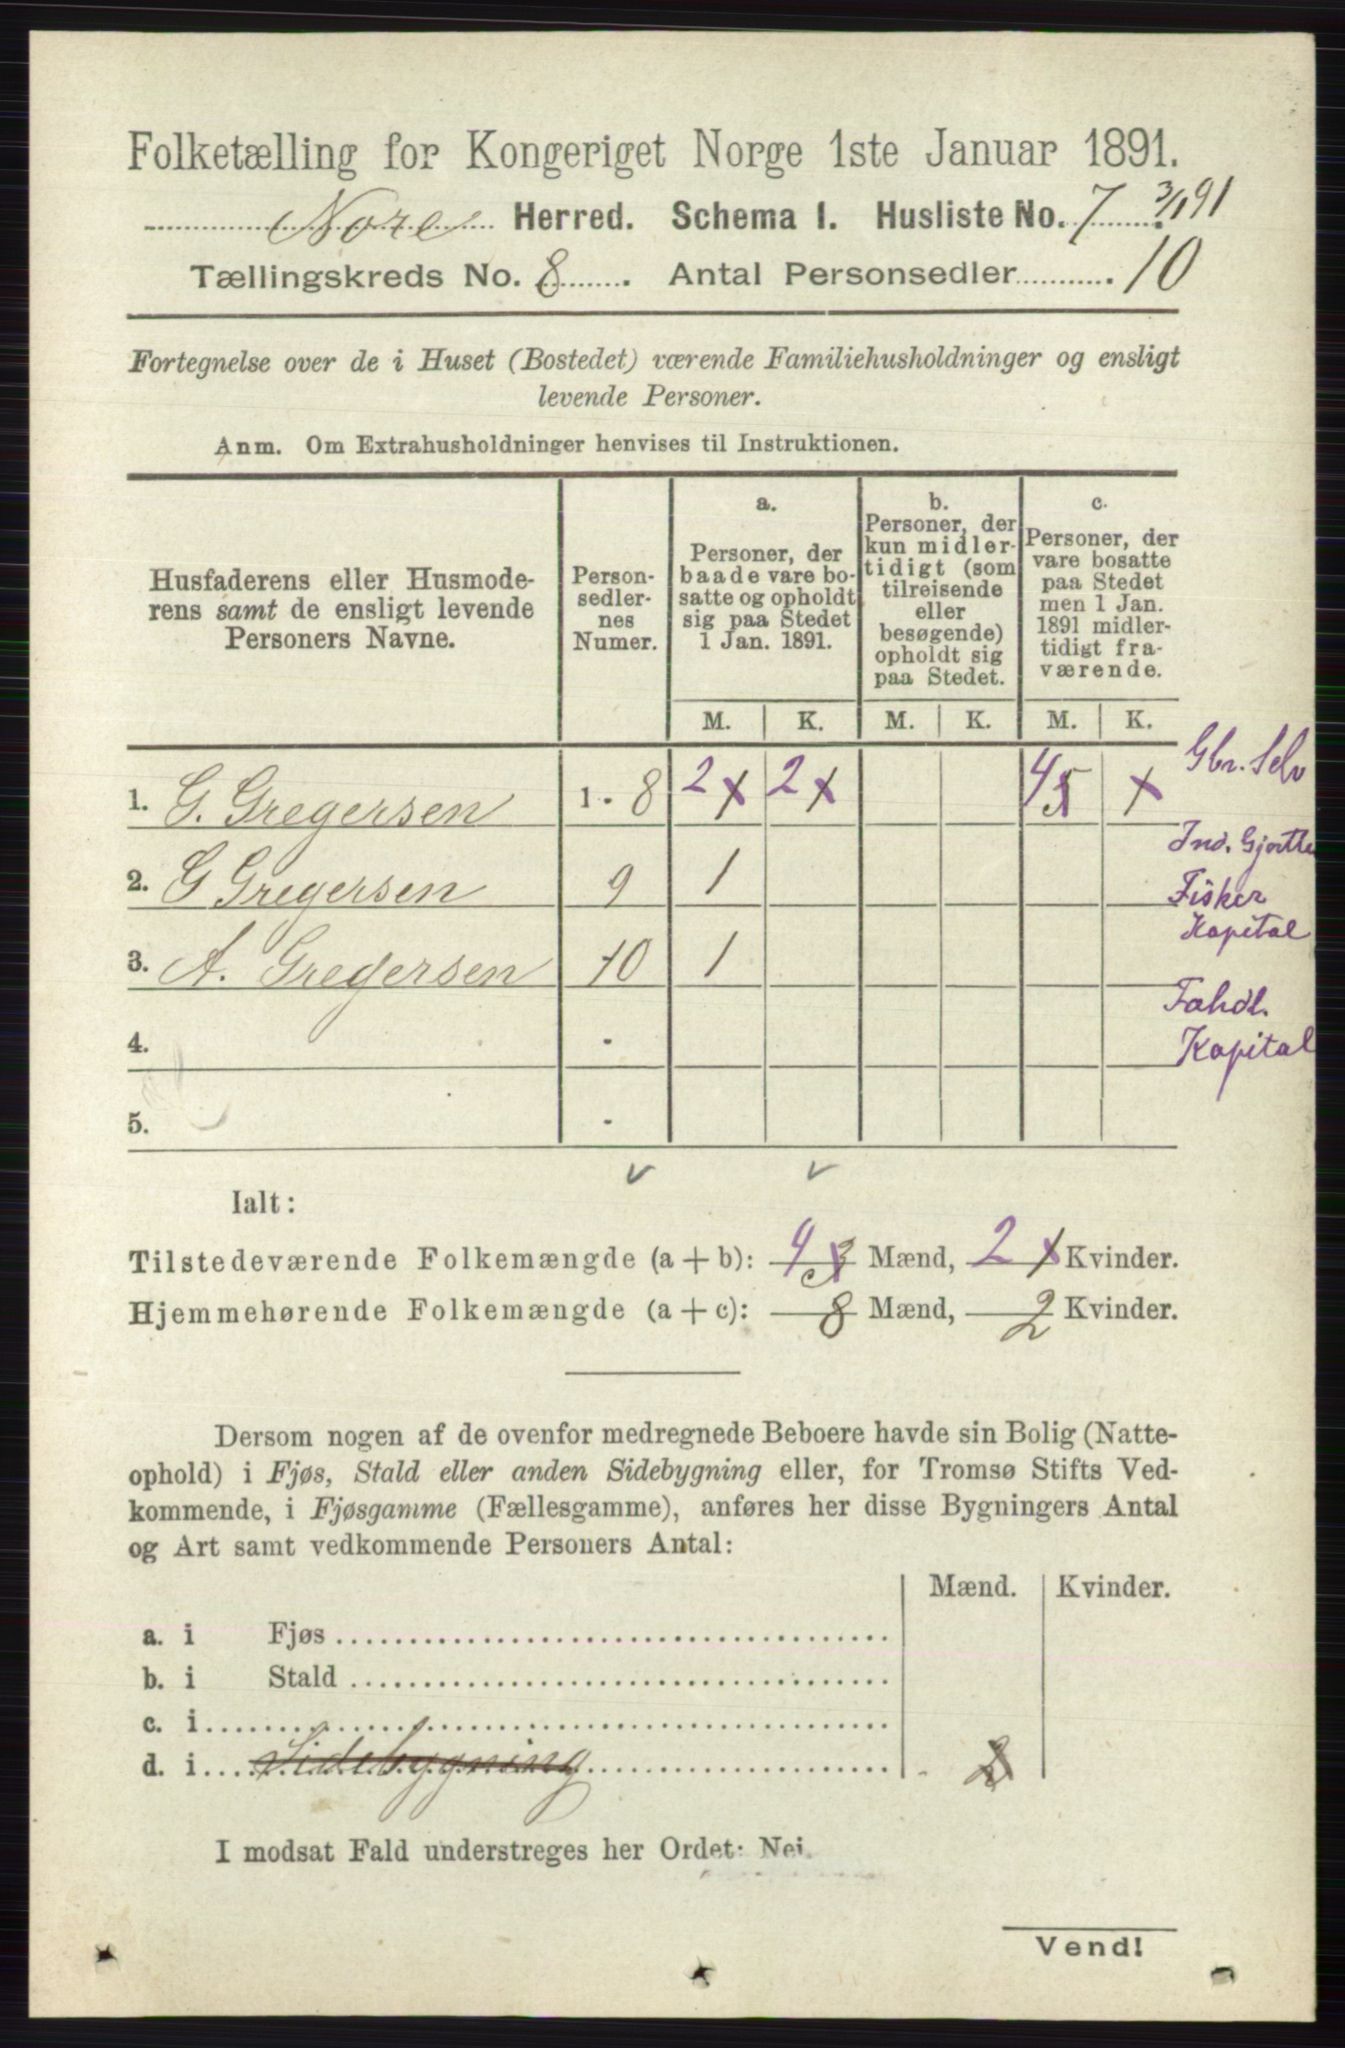 Folketælling for Kongeriget Norge 1ste Januar 1891.
Nore Herred. Schema I. Husliste No. 7 3/1 91
Tællingskreds No. 8. Antal Personsedler 10
Fortegnelse over de i Huset (Bostedet) værende Familiehusholdninger og ensligt
levende Personer.
Anm. Om Extrahusholdninger henvises til Instruktionen.
Husfaderens eller Husmode-
rens samt de ensligt levende
Personers Navne.
Person-
sedler-
nes
Numer.
a.
Personer, der
baade vare bo-
satte og opholdt
sig paa Stedet
1 Jan. 1891.
b.
Personer, der
kun midler-
tidigt (som
tilreisende
eller
besøgende)
opholdt sig
paa Stedet.
c.
Personer, der
vare bosatte
paa Stedet
men 1 Jan.
1891 midler-
tidigt fra-
værende.
M. K. M. K. M. K.
1. G. Gregersen 1 - 8 2 2 4 5 Gbr. Selv
2. G Gregersen 9 1
Ind. Gjortler
Fisker
Kapital
3. A. Gregersen 10 1
Kapital
4. -
5. -
Ialt:
Tilstedeværende Folkemængde (a + b): 4 3 Mænd, 2 Kvinder.
Hjemmehørende Folkemængde (a + c): 8 Mænd, 2 Kvinder.
Dersom nogen af de ovenfor medregnede Beboere havde sin Bolig (Natte-
ophold) i Fjøs, Stald eller anden Sidebygning eller, for Tromsø Stifts Ved-
kommende, i Fjøsgamme (Fællesgamme), anføres her disse Bygningers Antal
og Art samt vedkommende Personers Antal:
Mænd. Kvinder.
a. i Fjøs
b. i Stald
c. i
d. i Sidebygning 2
I modsat Fald understreges her Ordet: Nei.
Vend!